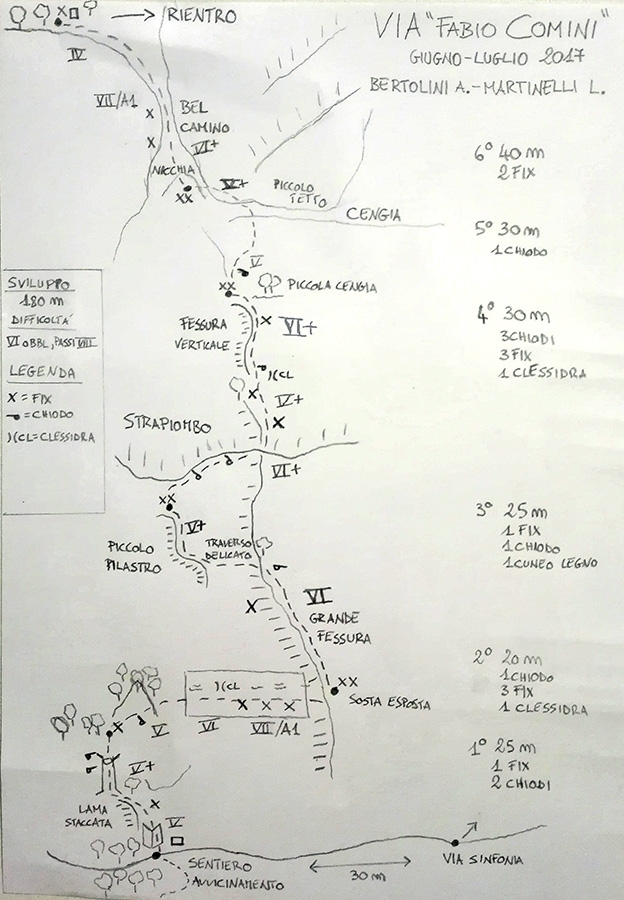 VIA "FABIO COMINI"
GIUGNO-LUGLIO 2017
BERTOLINI A.-MARTINELLI L.
X
RIENTRO
IV
VII/A1
X
X
BEL
CAMINO
VI+
NICCHIA
XX
V+
PICCOLO
TETTO
CENGIA
V
XX
PICCOLA CENGIA
FESSURA
VERTICALE
X
VI+
)(CL
X
IV+
X
STRAPIOMBO
VI+
XX
V+
PICCOLO
PILASTRO
TRAVERSO
DELICATO
X
VI
GRANDE
FESSURA
XX
SOSTA ESPOSTA
)(CL
X X X
X
V
VI
VII/A1
V+
LAMA
STACCATA
X
V
SENTIERO
AVVICINAMENTO
30 m
VIA SINFONIA
SVILUPPO
180 m
DIFFICOLTÁ
VI OBBL, PASSI VIII
LEGENDA
X = FIX
= CHIODO
)(CL = CLESSIDRA
6° 40 m
2 FIX
5° 30 m
1 CHIODO
4° 30 m
3 CHIODI
3 FIX
1 CLESSIDRA
3° 25 m
1 FIX
1 CHIODO
1 CUNEO LEGNO
2° 20 m
1 CHIODO
3 FIX
1 CLESSIDRA
1° 25 m
1 FIX
2 CHIODI